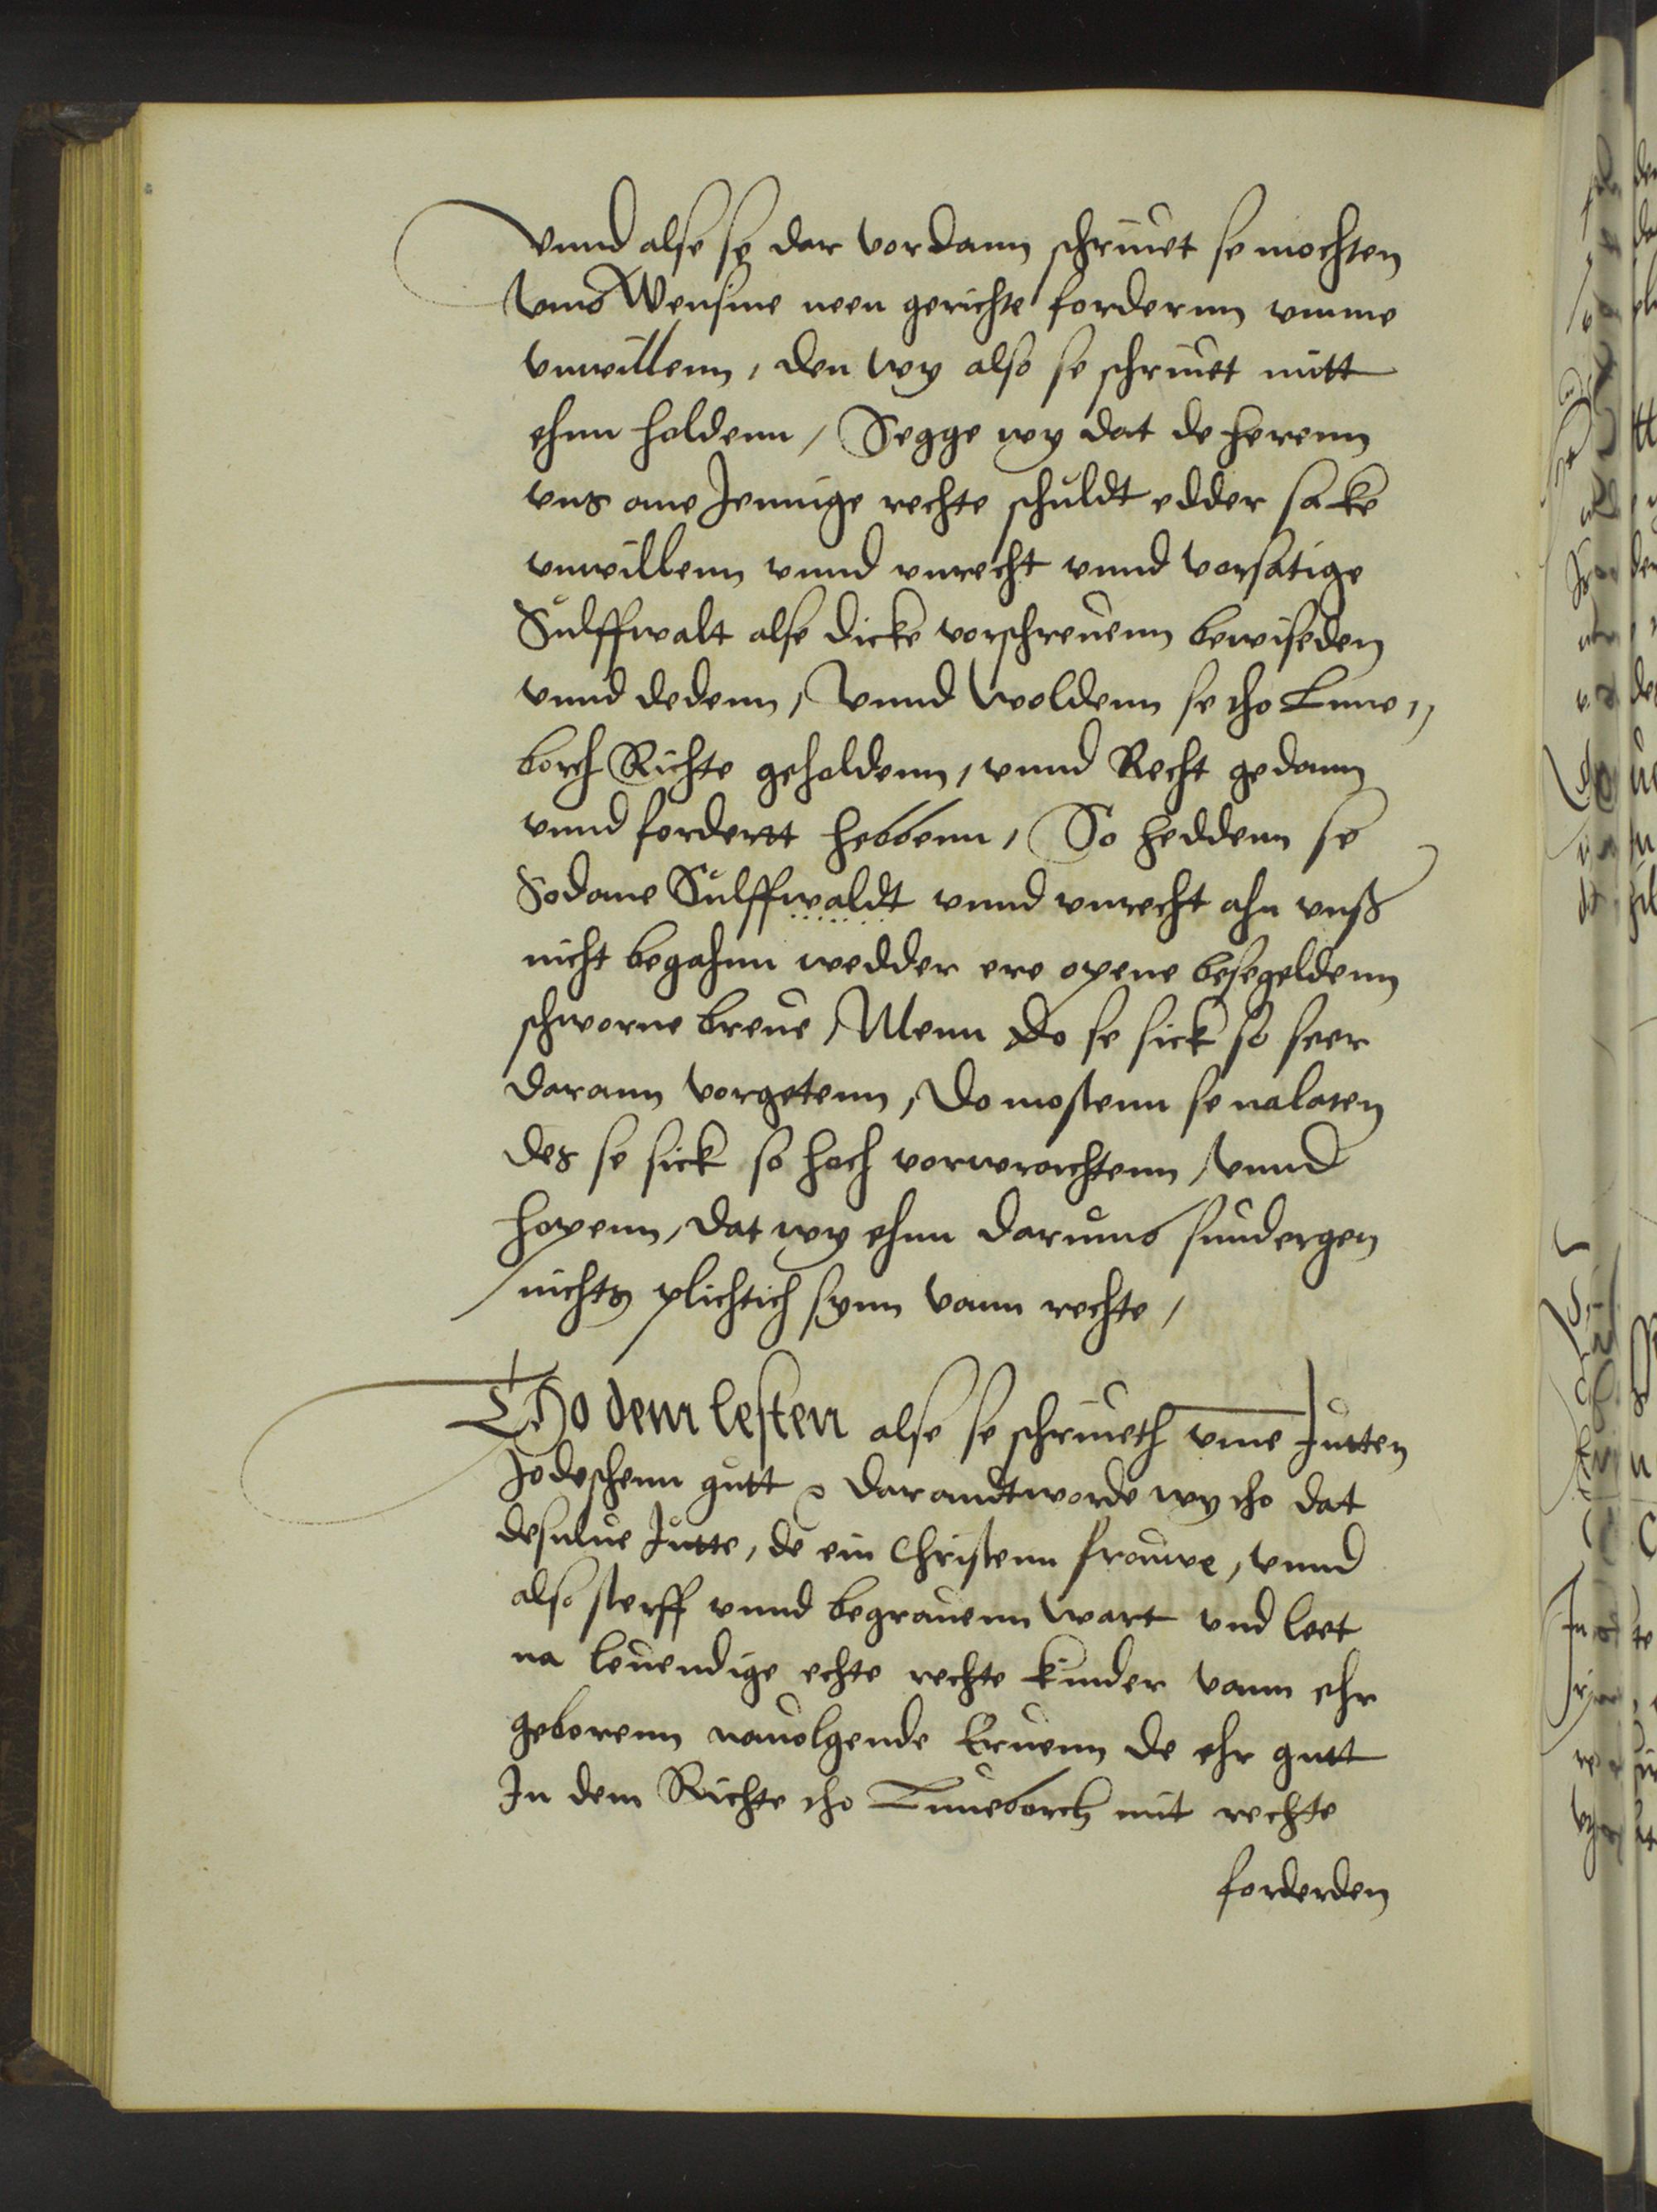 Vnnd alse se dar vordann schriuet se mochten
vmb Wensine neen gerichte fordernn vmme
vnwillenn, den wy alse se schriuet mitt
ehnn holdenn, Segge wy dat de herenn
vns ane Jennige rechte schuldt edder sake
vnwillenn vnnd vnrecht vnnd vorsatige
Sulffwalt alse dicke vorschreuenn bewiseden
vnnd dedenn, Vnnd woldenn se tho Lune,,
borch Richte geholdenn, vnnd Recht gedann
vnnd fordertt hebbenn, So heddenn se
Sodane Sulffwaldt vnnd vnrecht ahn vnß
nicht begahnn wedder ere opene besegeldenn
schworne breue, Menn do se sick so seer
darann vorgetenn, do mostenn se nalaten
des se sick so hoch vorwrachtenn, vnnd
hopenn, dat wy ehnn darumb sundergen
nichts plichtich synn vann rechte,
Tho dem lesten alse se schriueth vme Jutten
Jodeschenn gutt, darandtworde wy tho dat
desulue Jutte, de ein Christenn frouwe, vnnd
also sterff vnnd begrauenn wart vnd leet
na leuendige echte rechte kinder vann ehr
geborenn nauolgende Eruenn de ehr gutt
In dem Richte tho Luneborch mit rechte
forderden